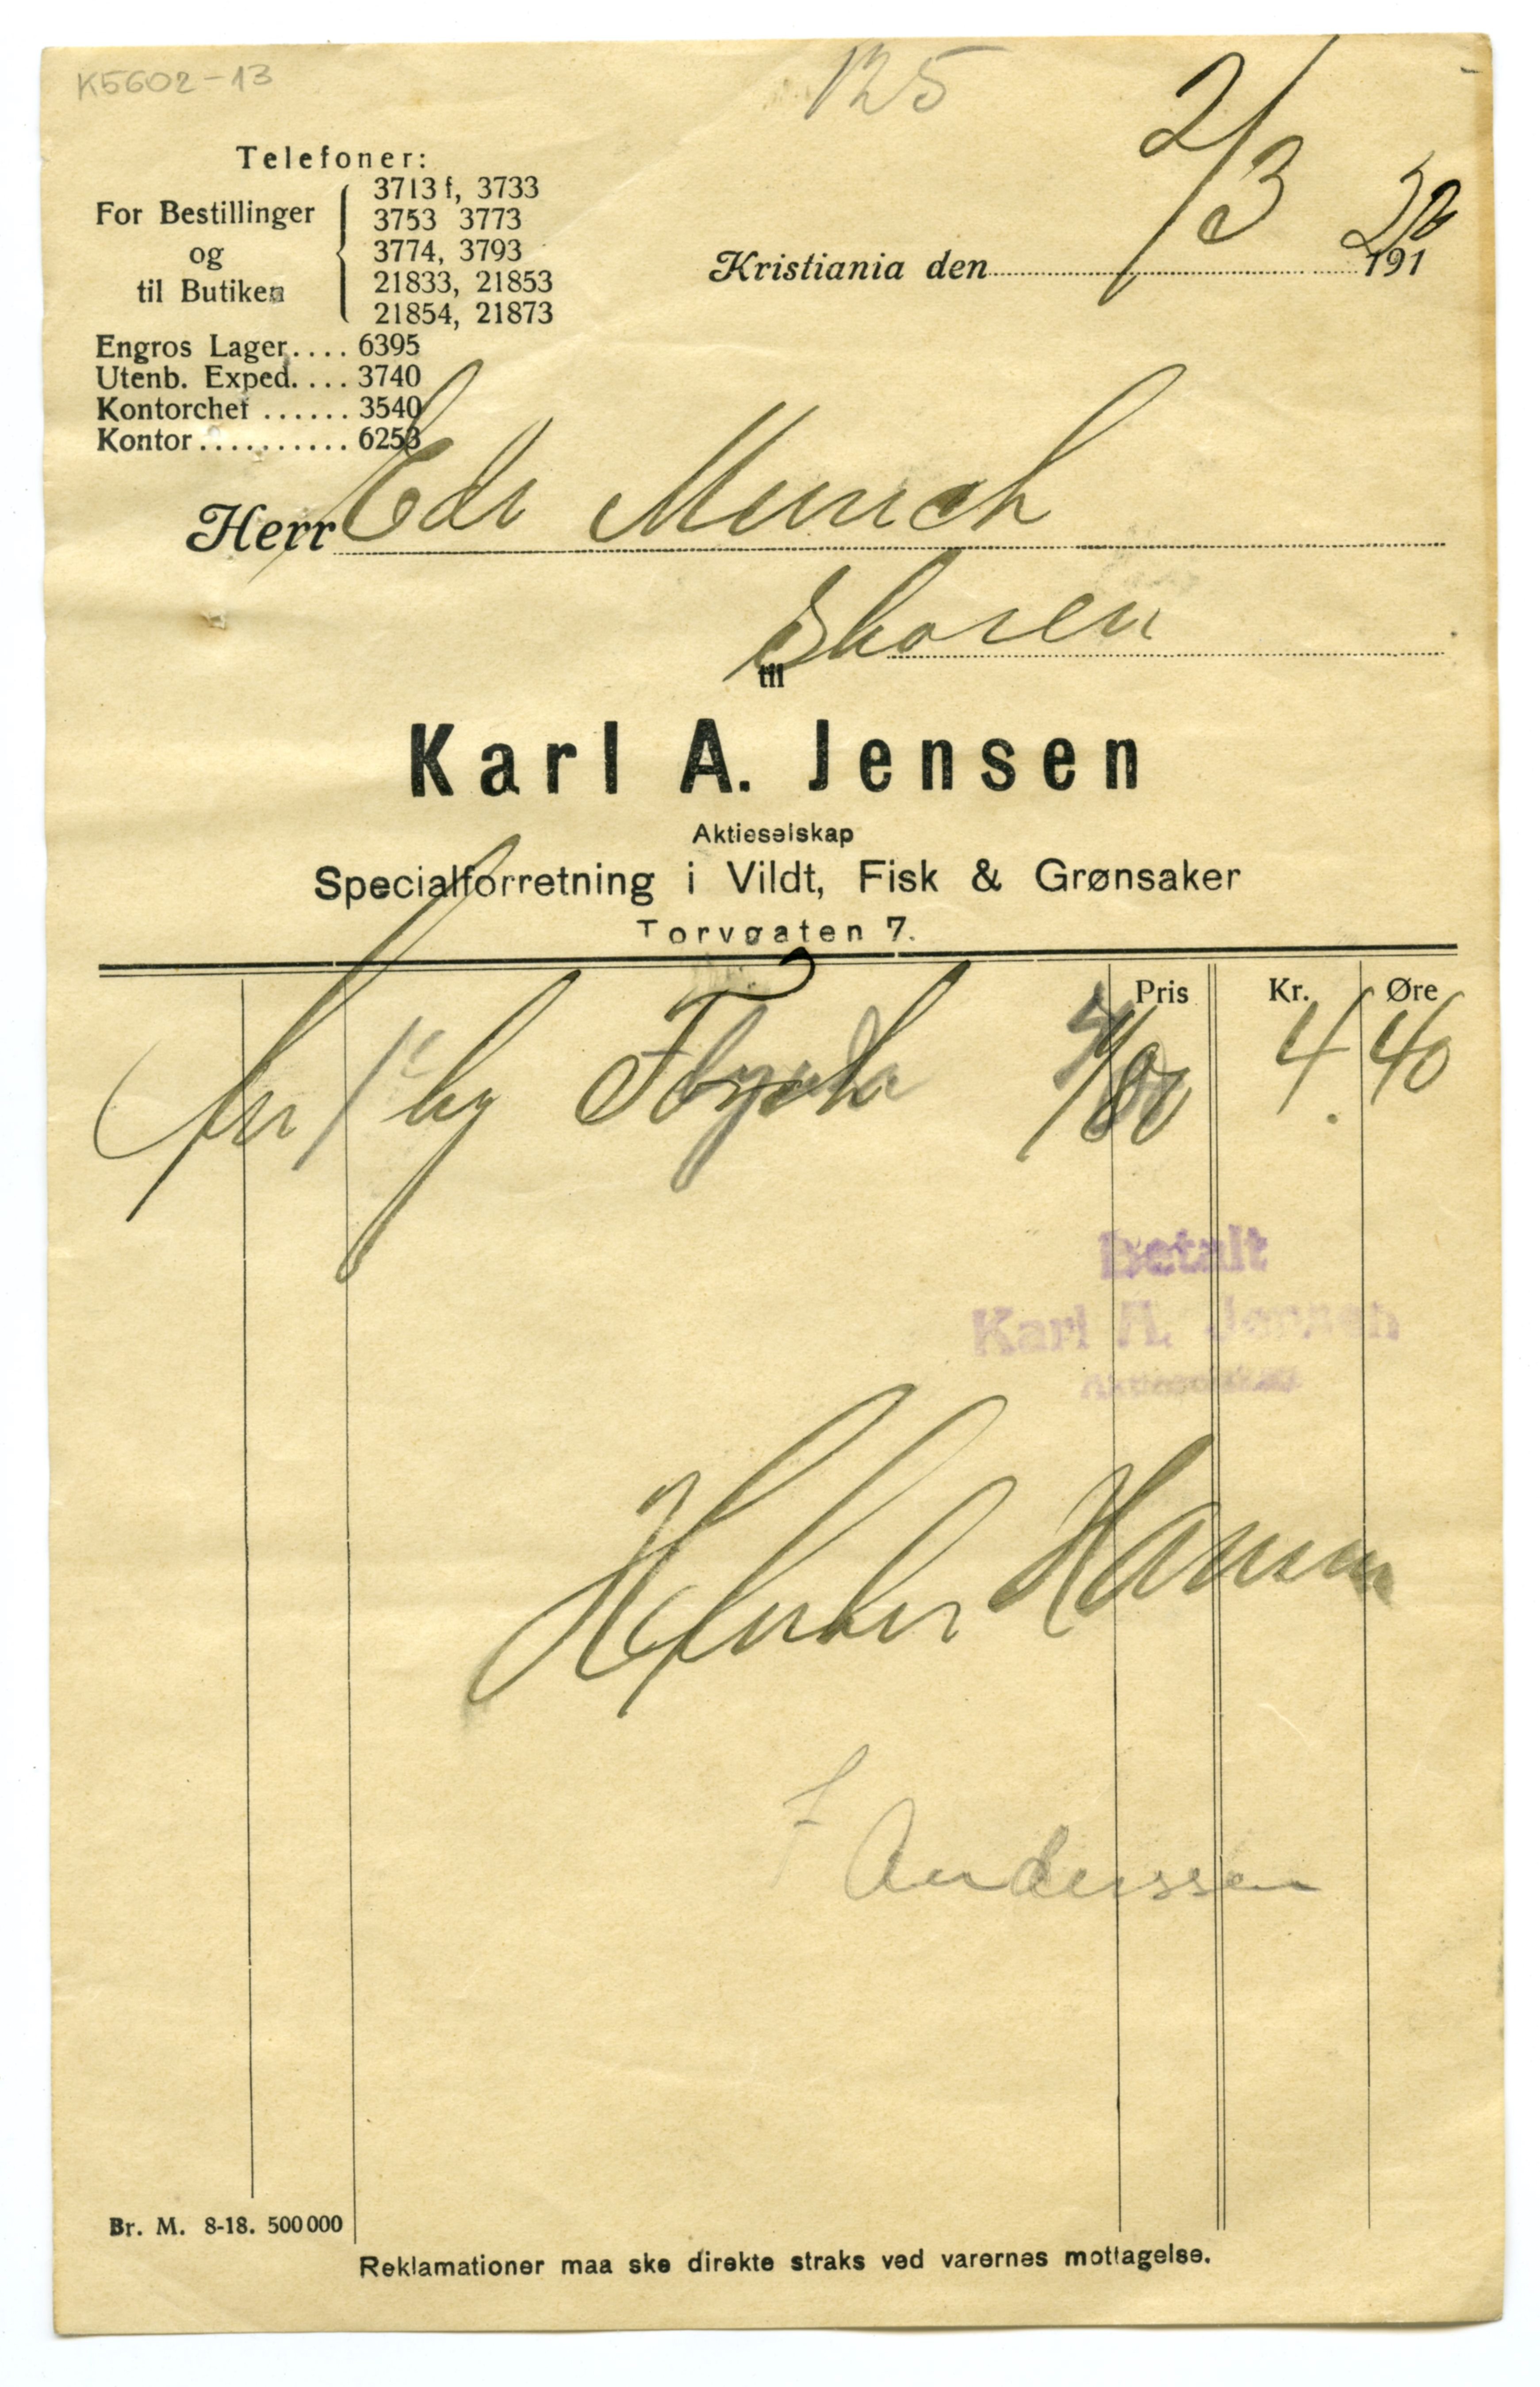 K5602-13
125
Telefoner:
For Bestillinger
og
til Butiken
3713 f, 3733
3753 3773
3774, 3793
21833, 21853
21854, 21873
Engros Lager.... 6395
Utenb. Exped.... 3740
Kontorchef ...... 3540
Kontor.......... 6253
2/3 20
Kristiania den 191
Herr Edv Munch
Skøien
til
Karl A. Jensen
Aktieselskap
Specialforretning i Vildt, Fisk & Grønsaker
Torvgaten 7.
Pris Kr. Øre
kg Torsk 4.40
Betalt
Karl A. Jensen
Aktieselskap
Hansen
Anderssen
Br. M. 8-18. 500000
Reklamationer maa ske direkte straks ved varernes mottagelse.